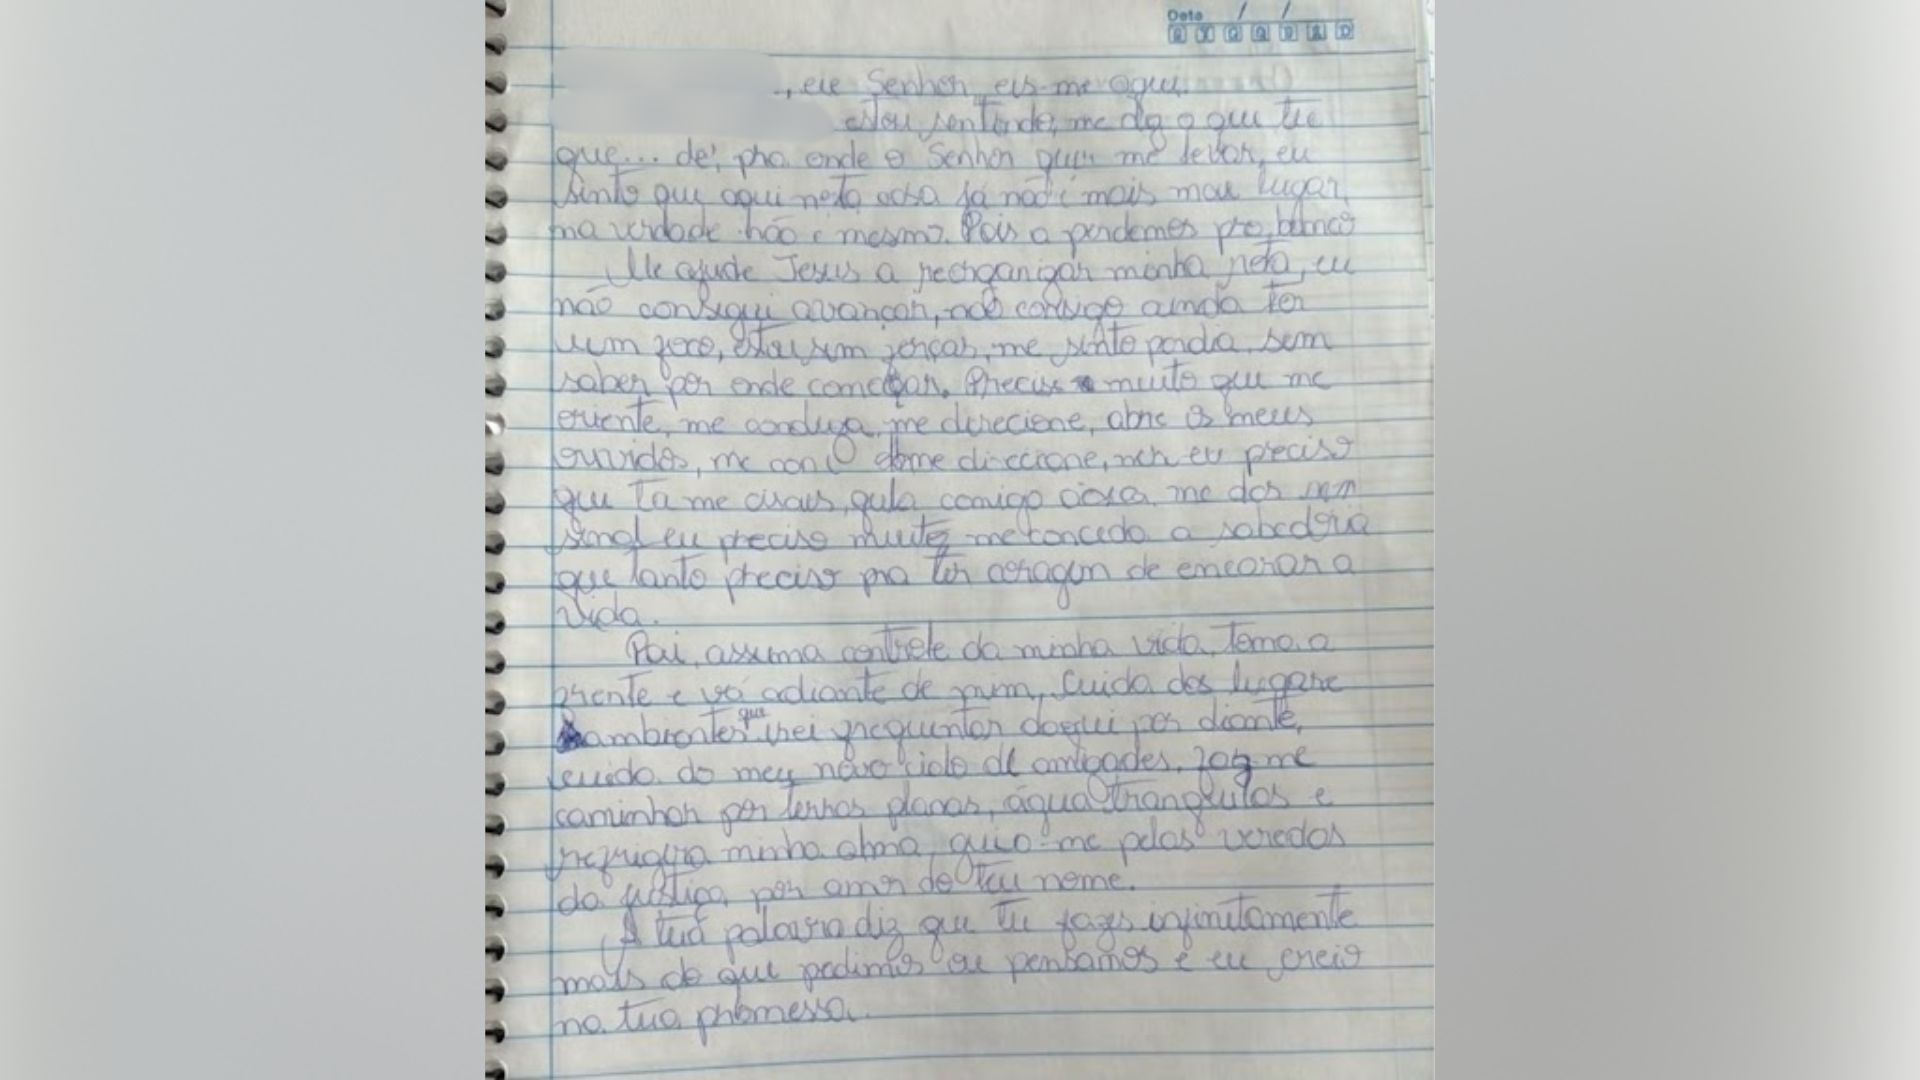 Data / /
D S T Q Q S S
, eie Senhor, eis-me aqui.
estou sentindo, me diga o que tu
que... de, pra onde o Senhor quer me levar, eu
sinto que aqui nesta casa já não é mais meu lugar,
na verdade não é mesmo. Pois a perdemos pro banco
Me ajude Jesus a reorganizar minha rota, eu
não consegui avançar, não consigo ainda ter
um foco, estou sem forças, me sinto perdia, sem
saber por onde começar. Preciso muito que me
oriente, me conduza, me direcione, abre os meus
ouvidos, me direccione, eu preciso
que tu me comigo me dos um
sinal eu preciso muito me conceda a sabedoria
que tanto preciso pra ter coragem de encarar a
vida.
Pai, assuma controle da minha vida, toma a
frente e vá adiante de mim, cuida dos lugare
ambientes que irei frequentar daqui por diante,
cuida do meu novo ciclo de amizades, faz me
caminhar por terras planas, água tranquilas e
refrigera minha alma, guia-me pelas veredas
da justiça por amor do teu nome.
A tua palavra diz que Tu fazes infinitamente
mais do que pedimos ou pensamos e eu creio
na tua promessa.